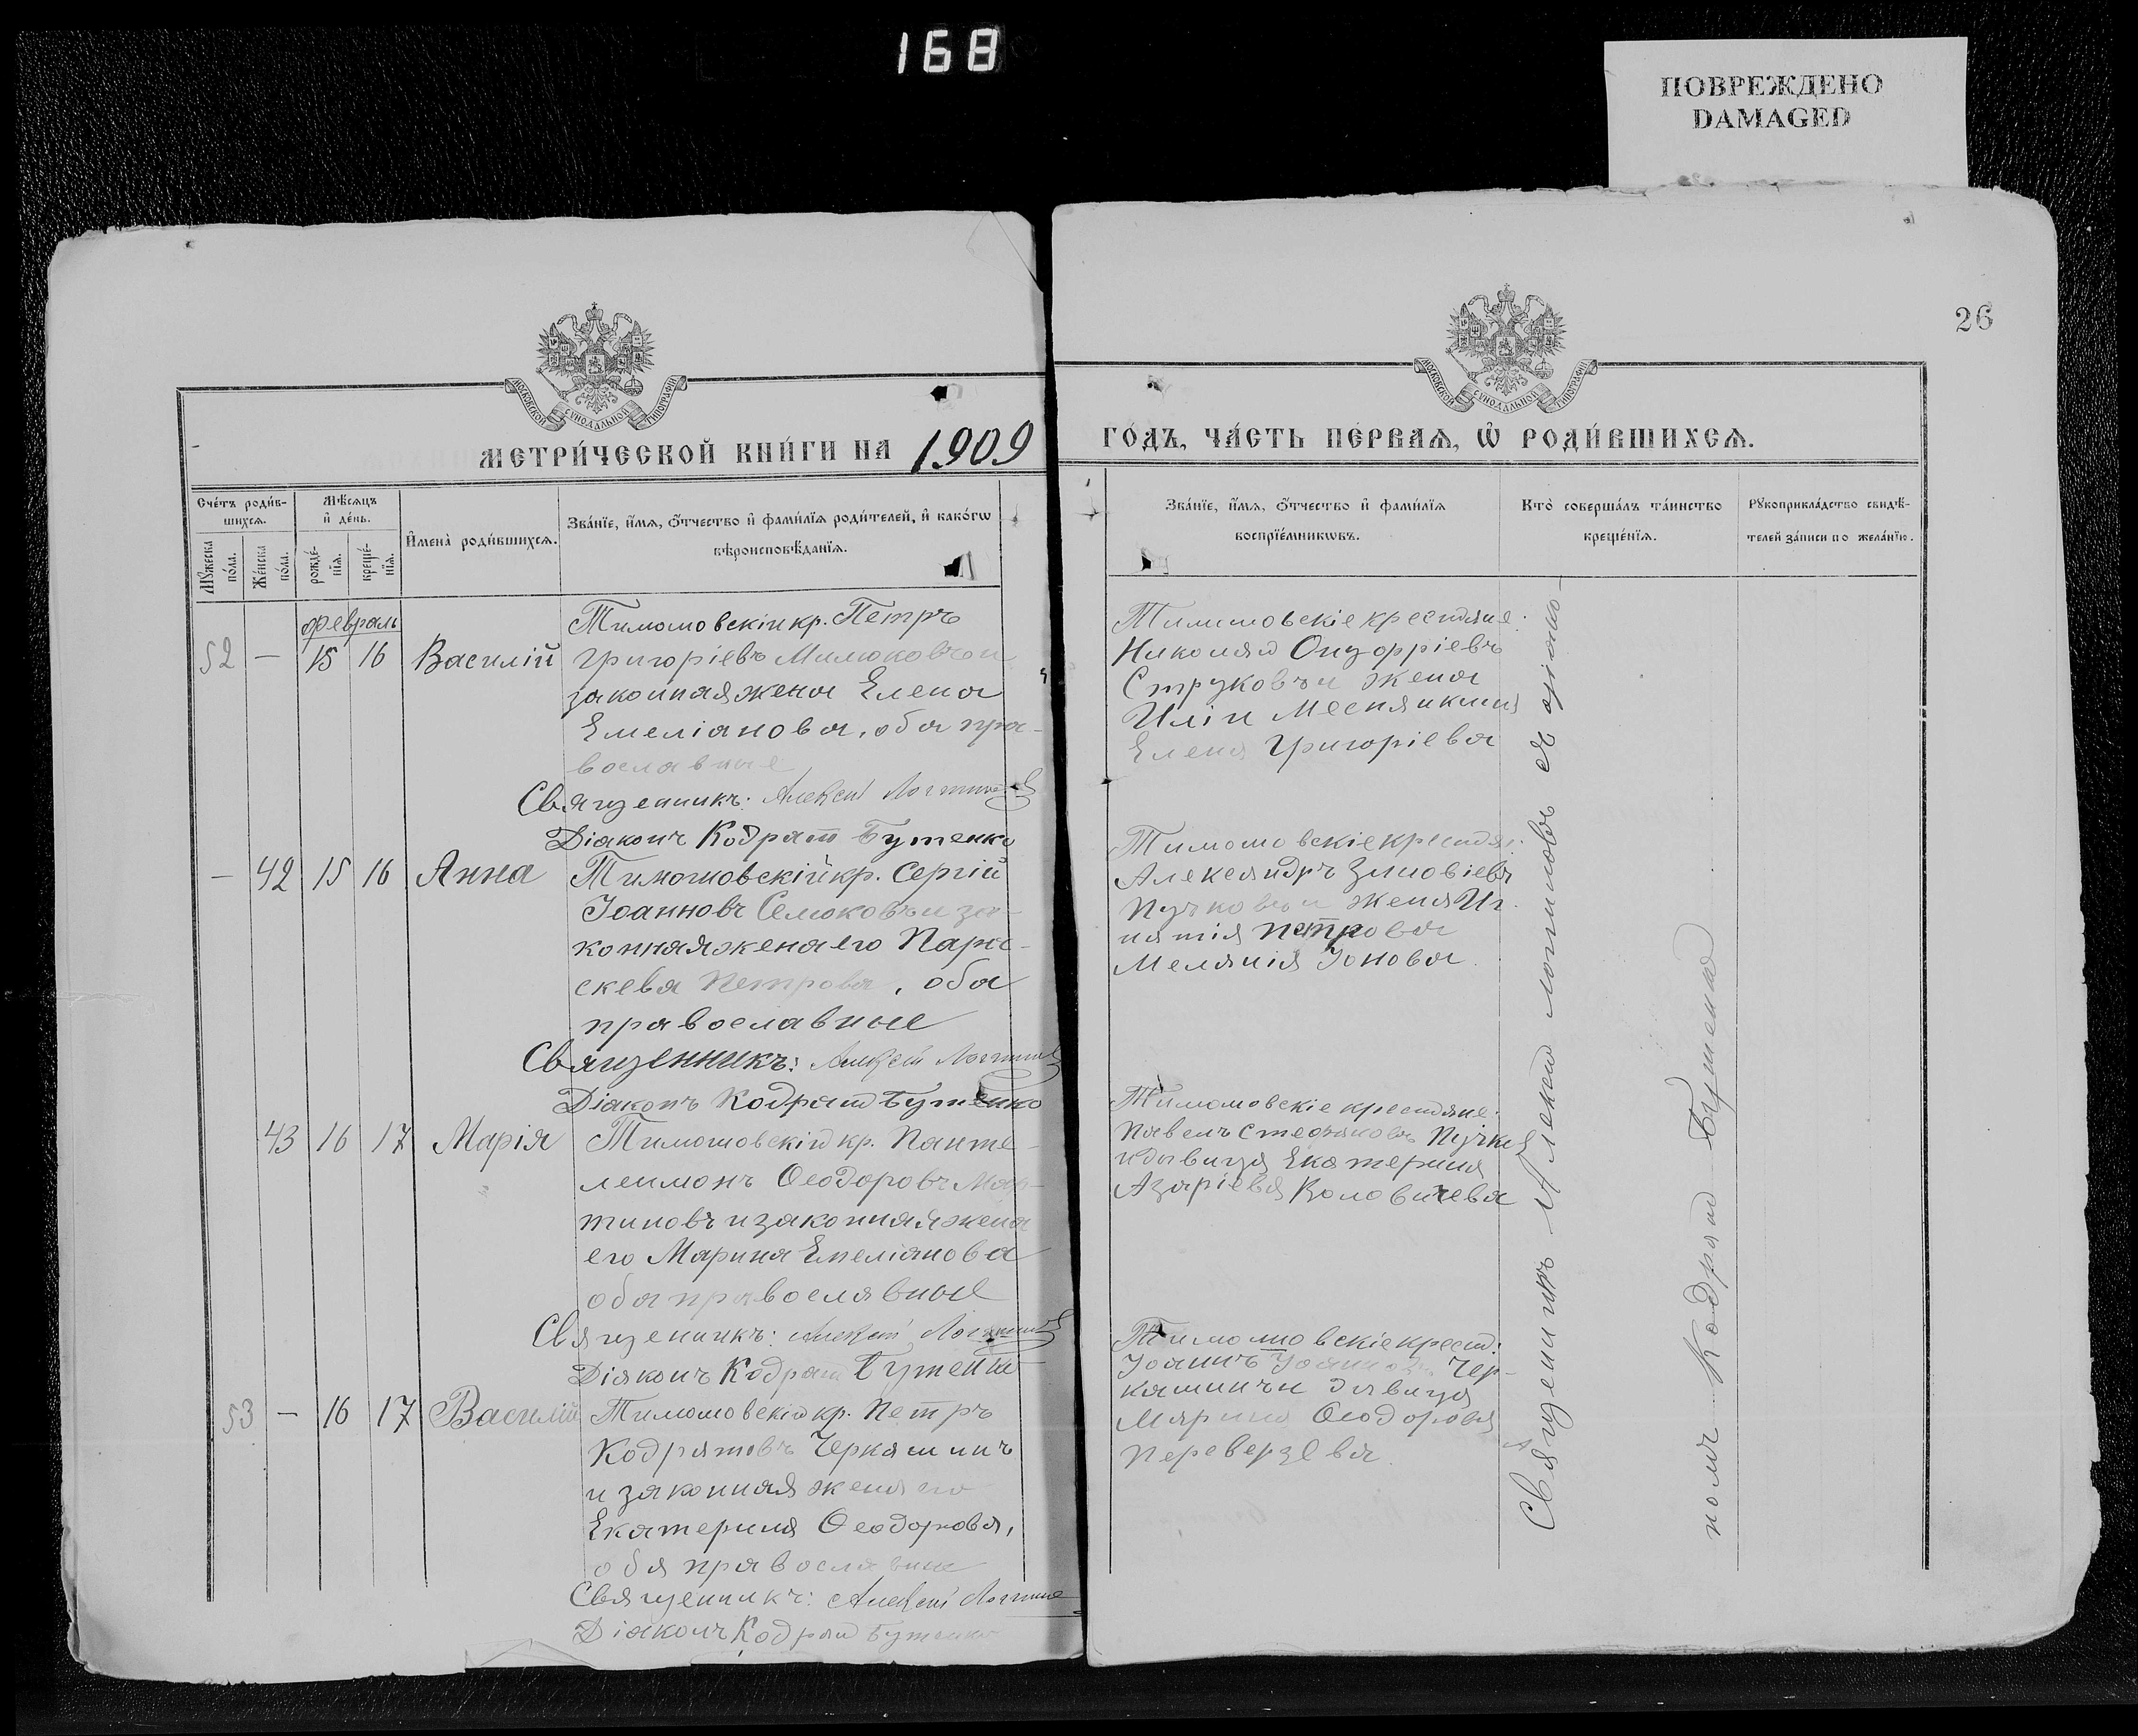 168
ПОВРЕЖДЕНО
DAMAGED
26
МОСКОВСКОЙ СѴНОДАЛЬНОЙ ТИПОГРАФІИ
МОСКОВСКОЙ СѴНОДАЛЬНОЙ ТИПОГРАФІИ
МЕТРИ́ЧЕСКОЙ КНИ́ГИ НА 1909
ГО́ДЪ, ЧА́СТЬ ПЕ́РВАѦ, Ѽ РОДИ́ВШИХСѦ.
Сче́тъ роди́в-
шихсѧ.
Мꙋ́жеска по́ла.
Же́нска по́ла.
Мѣ́сѧцъ
и҆ де́нь.
рожде́-
нїѧ.
креще́-
нїѧ.
И҆мена̀ роди́вшихсѧ.
Зва́нїе, и҆́мѧ, ѻ҆́тчество и҆ фами́лїѧ роди́телей, и҆ како́гѡ
вѣроисповѣ́данїѧ.
Зва́нїе, и҆́мѧ, ѻ҆́тчество и҆ фами́лїѧ
воспрїе́мникѡвъ.
Кто̀ соверша́лъ та́инство
креще́нїѧ.
Рꙋкоприкла́дство свидѣ́-
телей за́писи по жела́нїю.
Февраль
52 — 15 16 Василій
Тимошовскій кр. Петръ
Григоріевъ Милюковъ и
законная жена Елена
Емеліанова, оба пра-
вославные
Священникъ: Алексій Логгинов
Діаконъ Кодрат Бутенко
Тимошовскіе крестяне:
Николай Онуфріевъ
Струковъ и жена
Иліи Месняшкина
Елена Григоріева
— 42 15 16 Анна
Тимошовскій кр. Сергій
Іоанновъ Семоковъ и за-
конная жена его Парас-
кева Петрова, оба
православные
Священникъ: Алексій Логгинов
Діаконъ Кодрат Бутенко
Тимошовскіе крестя:
Александръ Зиновіевъ
Пучковъ и жена Иг-
натія Петрова
Меланія Іонова
43 16 17 Марія
Тимошовскій кр. Панте-
леимонъ Ѳеодоровъ Мар-
тиновъ и законная жена
его Марина Емеліанова
оба православные
Священникъ: Алексій Логгинов
Діаконъ Кодрат Бутенко
Тимошовскіе крестяне:
Павелъ Стефановъ Пучков
и дѣвица Екатерина
Азаріева Воловичева
53 — 16 17 Василій
Тимошовскій кр. Петръ
Кодратовъ Черкашинъ
и законная жена его
Екатерина Ѳеодорова,
оба православные
Священникъ: Алексій Логгинов
Діаконъ Кодрат Бутенко
Тимошовскіе крест:
Іоаннъ Іоанновъ Чер-
кашинъ и дѣвица
Марина Ѳеодорова
Переверзева
Священникъ Алексій Логгиновъ съ діако-
номъ Кодрат Бутенко